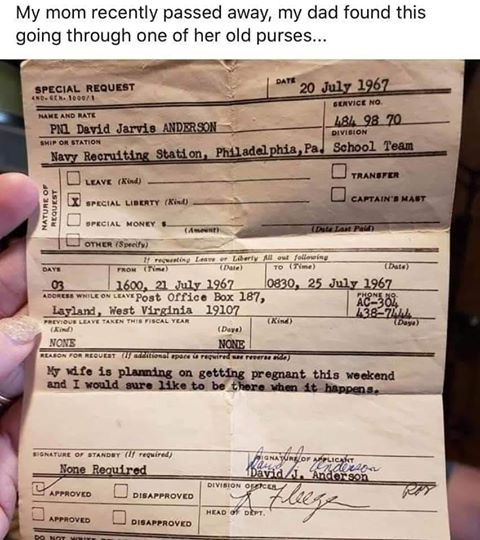 My mom recently passed away, my dad found this
going through one of her old purses...
SPECIAL REQUEST
DATE 20 July 1967
4ND-GEN. 1000/1
SERVICE NO.
NAME AND RATE
484 98 70
PN1 David Jarvis ANDERSON
DIVISION
SHIP OR STATION
Navy Recruiting Station, Philadelphia, Pa. School Team
NATURE OF REQUEST
LEAVE (Kind)
TRANSFER
X SPECIAL LIBERTY (Kind)
CAPTAIN'S MAST
SPECIAL MONEY $
(Amount) (Date Last Paid)
OTHER (Specify)
If requesting Leave or Liberty fill out following
DAYS FROM (Time) (Date) TO (Time) (Date)
03 1600, 21 July 1967 0830, 25 July 1967
ADDRESS WHILE ON LEAVE Post Office Box 187, PHONE NO.
AC-304
Layland, West Virginia 19107 438-7444
PREVIOUS LEAVE TAKEN THIS FISCAL YEAR
(Kind) (Days) (Kind) (Days)
NONE NONE
REASON FOR REQUEST (If additional space is required use reverse side)
My wife is planning on getting pregnant this weekend
and I would sure like to be there when it happens.
SIGNATURE OF STANDBY (If required) SIGNATURE OF APPLICANT
David J. Anderson
None Required David J. Anderson
APPROVED DISAPPROVED DIVISION OFFICER
APPROVED DISAPPROVED HEAD OF DEPT.
DO NOT WRITE